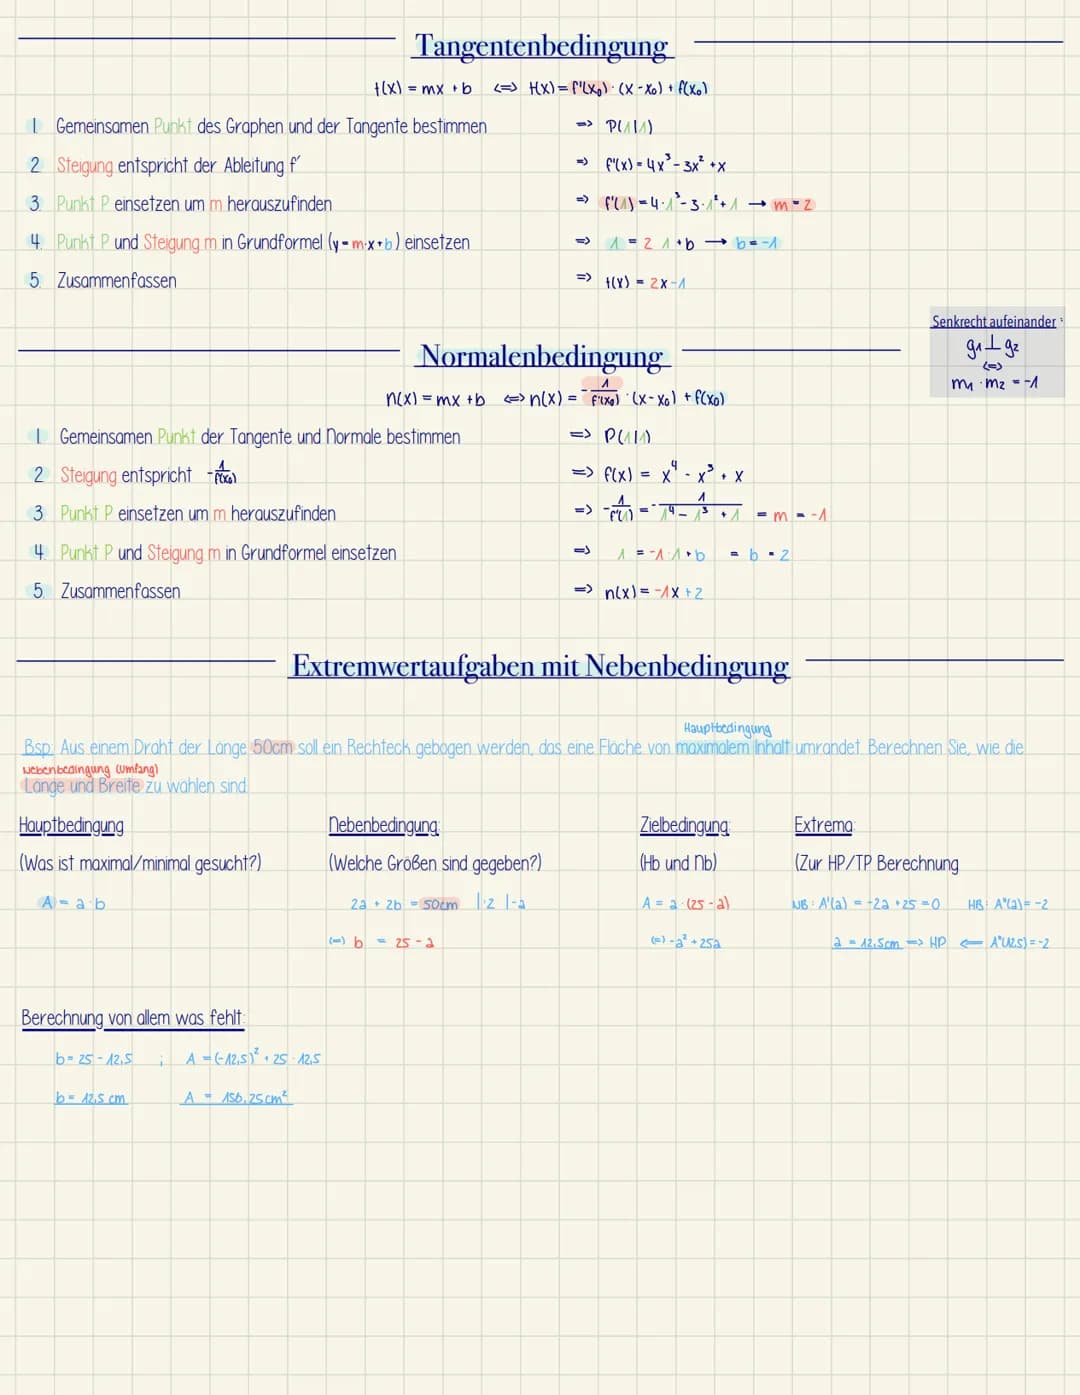 Tangentenbedingung
t(x) = mx + b <=> t(x) = f'(x₀) · (x - x₀) + f(x₀)
1. Gemeinsamen Punkt des Graphen und der Tangente bestimmen => P(1|1)
2. Steigung entspricht der Ableitung f' => f'(x) = 4x³ - 3x² + x
3. Punkt P einsetzen um m herauszufinden => f'(1) = 4·1³ - 3·1² + 1 → m = 2
4. Punkt P und Steigung m in Grundformel (y = m·x + b) einsetzen => 1 = 2 1 + b → b = -1
5. Zusammenfassen => t(x) = 2x - 1
Senkrecht aufeinander:
g₁ ⊥ g₂
<=>
m₁ · m₂ = -1
Normalenbedingung
n(x) = mx + b <=> n(x) = -1/f'(x₀) · (x - x₀) + f(x₀)
1. Gemeinsamen Punkt der Tangente und Normale bestimmen => P(1|1)
2. Steigung entspricht -1/f'(x₀) => f(x) = x⁴ - x³ + x
3. Punkt P einsetzen um m herauszufinden => -1/f'(1) = -1/(1⁴ - 1³ + 1) = m = -1
4. Punkt P und Steigung m in Grundformel einsetzen => 1 = -1·1 + b = b = 2
5. Zusammenfassen => n(x) = -1x + 2
Extremwertaufgaben mit Nebenbedingung
Hauptbedingung
Bsp: Aus einem Draht der Länge 50cm soll ein Rechteck gebogen werden, das eine Fläche von maximalem Inhalt umrandet. Berechnen Sie, wie die
Nebenbedingung (Umfang)
Länge und Breite zu wählen sind.
Hauptbedingung Nebenbedingung: Zielbedingung: Extrema:
(Was ist maximal/minimal gesucht?) (Welche Größen sind gegeben?) (Hb und Nb) (Zur HP/TP Berechnung
A = a · b 2a + 2b = 50cm |:2 |-a A = a · (25 - a) NB: A'(a) = -2a + 25 = 0 HB: A"(a) = -2
(=) b = 25 - a (=) -a² + 25a a = 12,5cm => HP <= A"(12,5) = -2
Berechnung von allem was fehlt:
b = 25 - 12,5 ; A = (-12,5)² + 25 · 12,5
b = 12,5 cm A = 156,25cm²